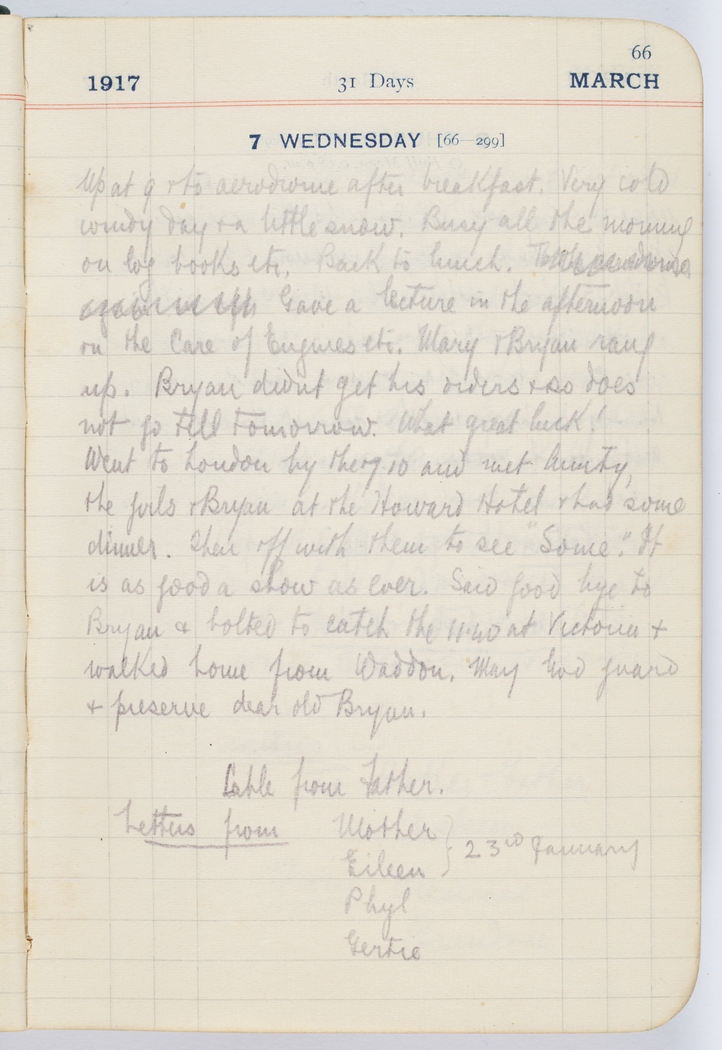 66
1917 31 Days MARCH
7 WEDNESDAY [66-299]
Up at 9 & to aerodrome after breakfast. Very cold
windy day & a little snow. Busy all the morning
on log books etc. Back to lunch.
Gave a lecture in the afternoon
on the Care of Engines etc. Mary & Bryan rang
up. Bryan didnt get his orders & so does
not go till tomorrow. What great luck!
Went to London by the 7.10 and met Aunty,
the girls & Bryan at the Howard Hotel & had some
dinner. Then off with them to see "Some". It
is as good a show as ever. Said good bye to
Bryan & bolted to catch the 11.40 at Victoria &
walked home from Waddon. May God guard
& preserve dear old Bryan.
Cable from Father.
Letters from Mother
Eileen } 23rd January
Phyl
Gertie